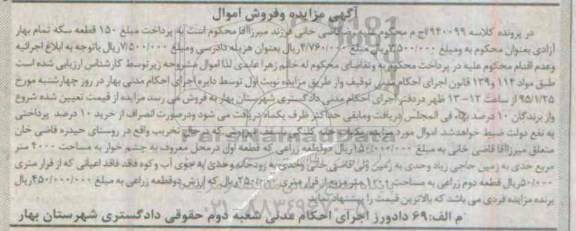 آگهی مزایده وفروش اموال
در پرونده کلاسه ۹۴۰۰۹۹/ج م محکوم قاضی خانی فرزند میرزاآقا محکوم است به پرداخت مبلغ ۱۵۰ قطعه سکه تمام بهار
آزادی بعنوان محکوم به ومبلغ ریال ۴/۷۶۰/۰۰۰ ریال بعنوان هزینه دادرسی ومبلغ ۷/۵۰۰/۰۰۰ ریال باتوجه به ابلاغ اجرائیه
وعدم اقدام محکوم علیه در پرداخت محکوم به وتقاضای محکوم له خانم زهرا عابدی لذا اموال مشروحه زیر توسط کارشناس ارزیابی شده است
طبق مواد ۱۱۴ و ۱۳۹ قانون اجرای احکام مدنی توقیف واز طریق مزایده نوبت اول توسط دایره اجرای احکام مدنی بهار در روز چهارشنبه مورخ
۹۵/۱/۲۵ از ساعت ۱۲-۱۳ ظهر در دفتر اجرای احکام مدنی دادگستری شهرستان بهار به فروش می رسد مزایده از قیمت تعیین شده شروع
واز برندگان ۱۰ درصد بهاء فی المجلس دریافت ومابقی حداکثر ظرف یکماه دریافت می شود ودرصورت انصراف از خرید ۱۰ درصد پرداختی
به نفع دولت ضبط خواهدشد اموال مورد مزایده یکباب خانه تخریب واقع در روستای حیدره قاضی خان
متعلق میرزاآقا قاضی خانی به مبلغ ۱۵۰/۰۰۰/۰۰۰ ریال دوقطعه زراعی که قطعه اول درمحل معروف به چشم خوار به مساحت ۴۰۰۰ متر
مربع حدی به زمین حاجی زیاد وحدی به زمین ولی قاضی خانی وحدی به رودخانه وحدی به جوی آب وکوه فاقد اعیانی که از قرار متری
۵۰/۰۰۰ ریال قطعه دوم زراعی به مساحت متر مربع از قرار متری ریال که ارزش دوقطعه زراعی به مبلغ ۴۵۰/۰۰۰/۰۰۰ ریال
برنده مزایده فردی می باشد که بالاترین قیمت را پیشنهاد نماید
م الف: ۶۹ دادورز اجرای احکام مدنی شعبه دوم حقوقی دادگستری شهرستان بهار